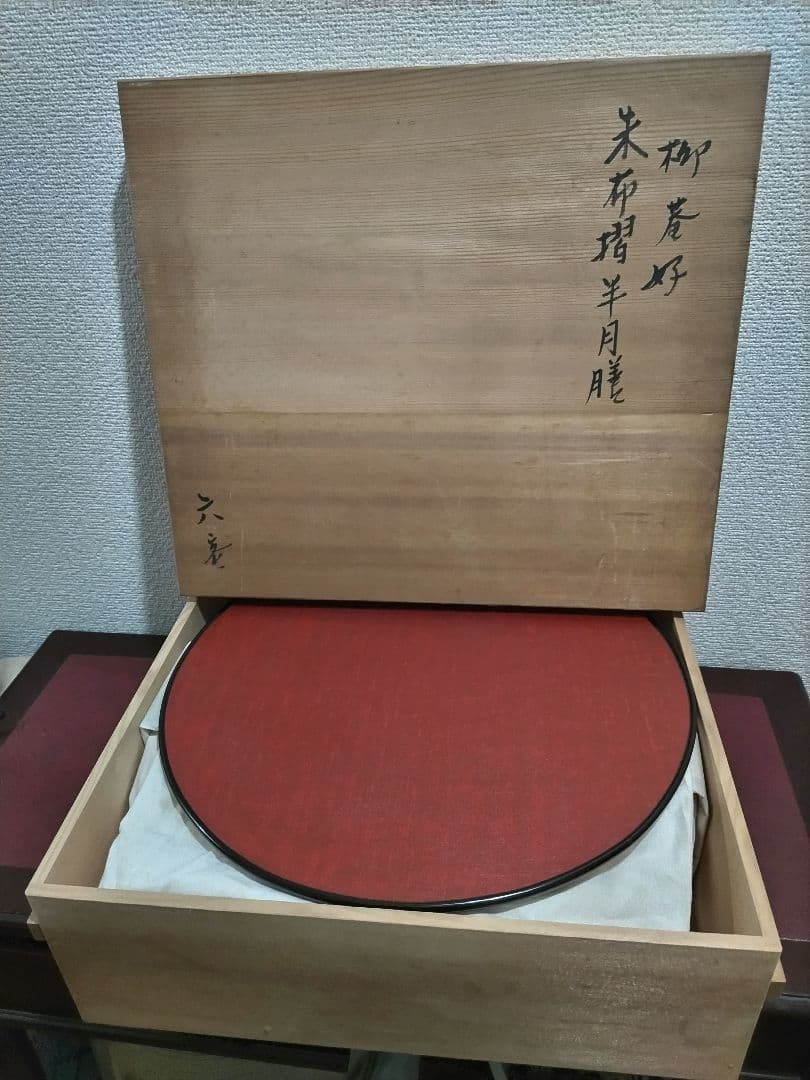 柳菴好
朱布摺半月膳
六